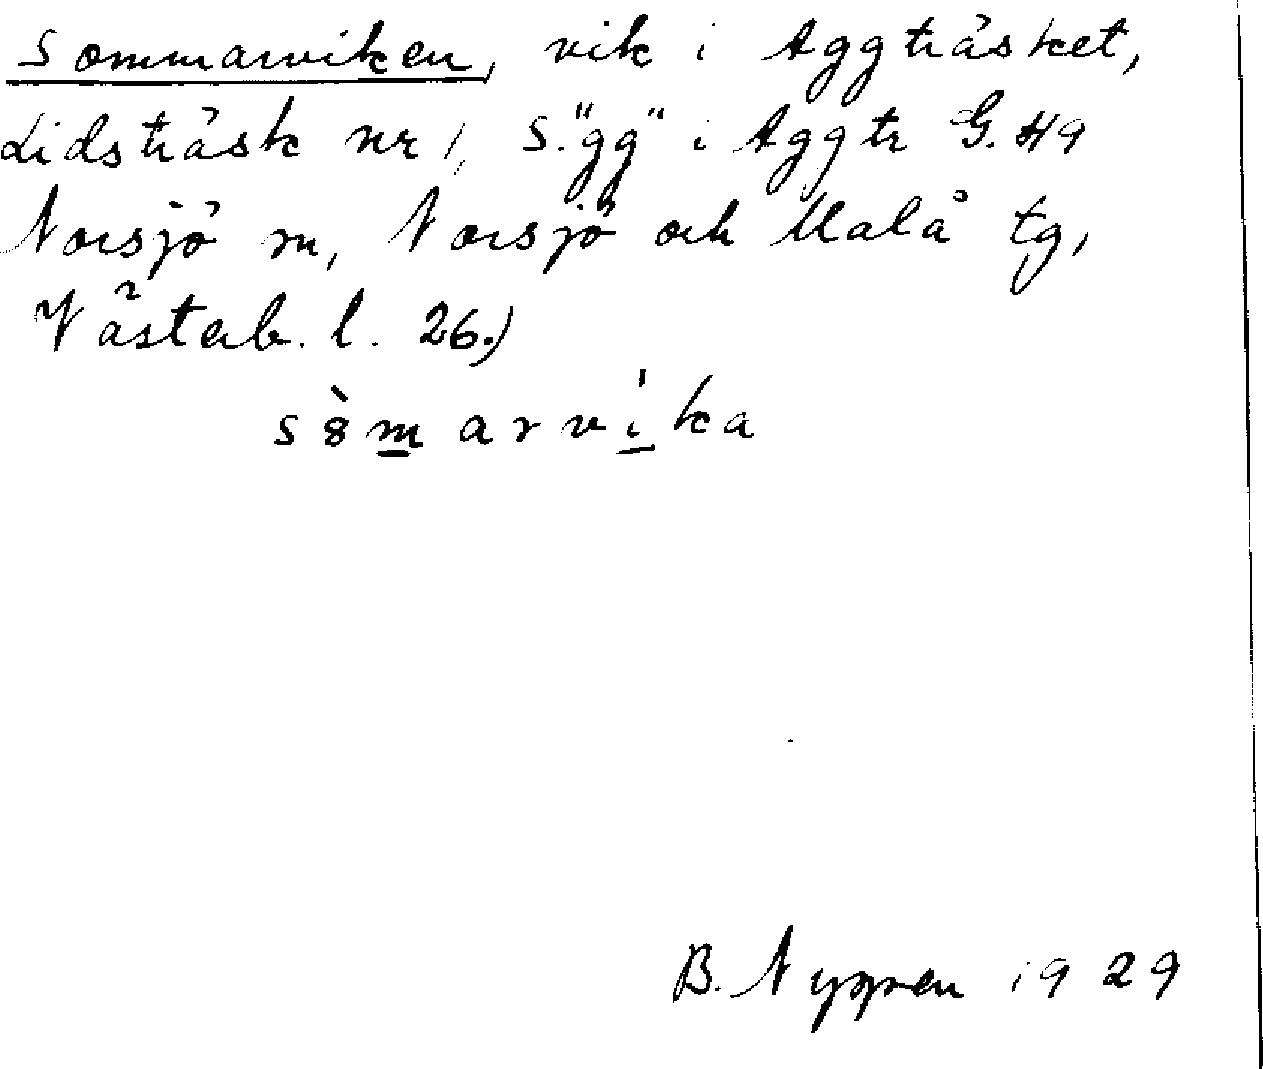 Sommarviken, vik i Aggträsket,
Lidsträsk nr 1, S. "gg" i Aggtr G. 49
Norsjö sn, Norsjö och Malå tg,
Västerb. l. 26.)
sòmarvíka
B. Nygren 1929